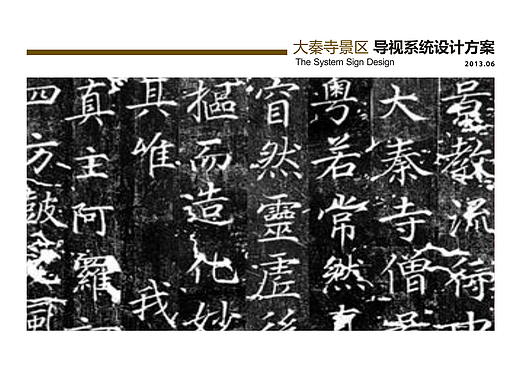 大秦寺景区 导视系统设计方案
The System Sign Design
2013.06
景教流行
大秦寺僧
粵若常然
窅然靈虛後
摳而造化妙
其唯 我
真主阿羅
四方鼓風